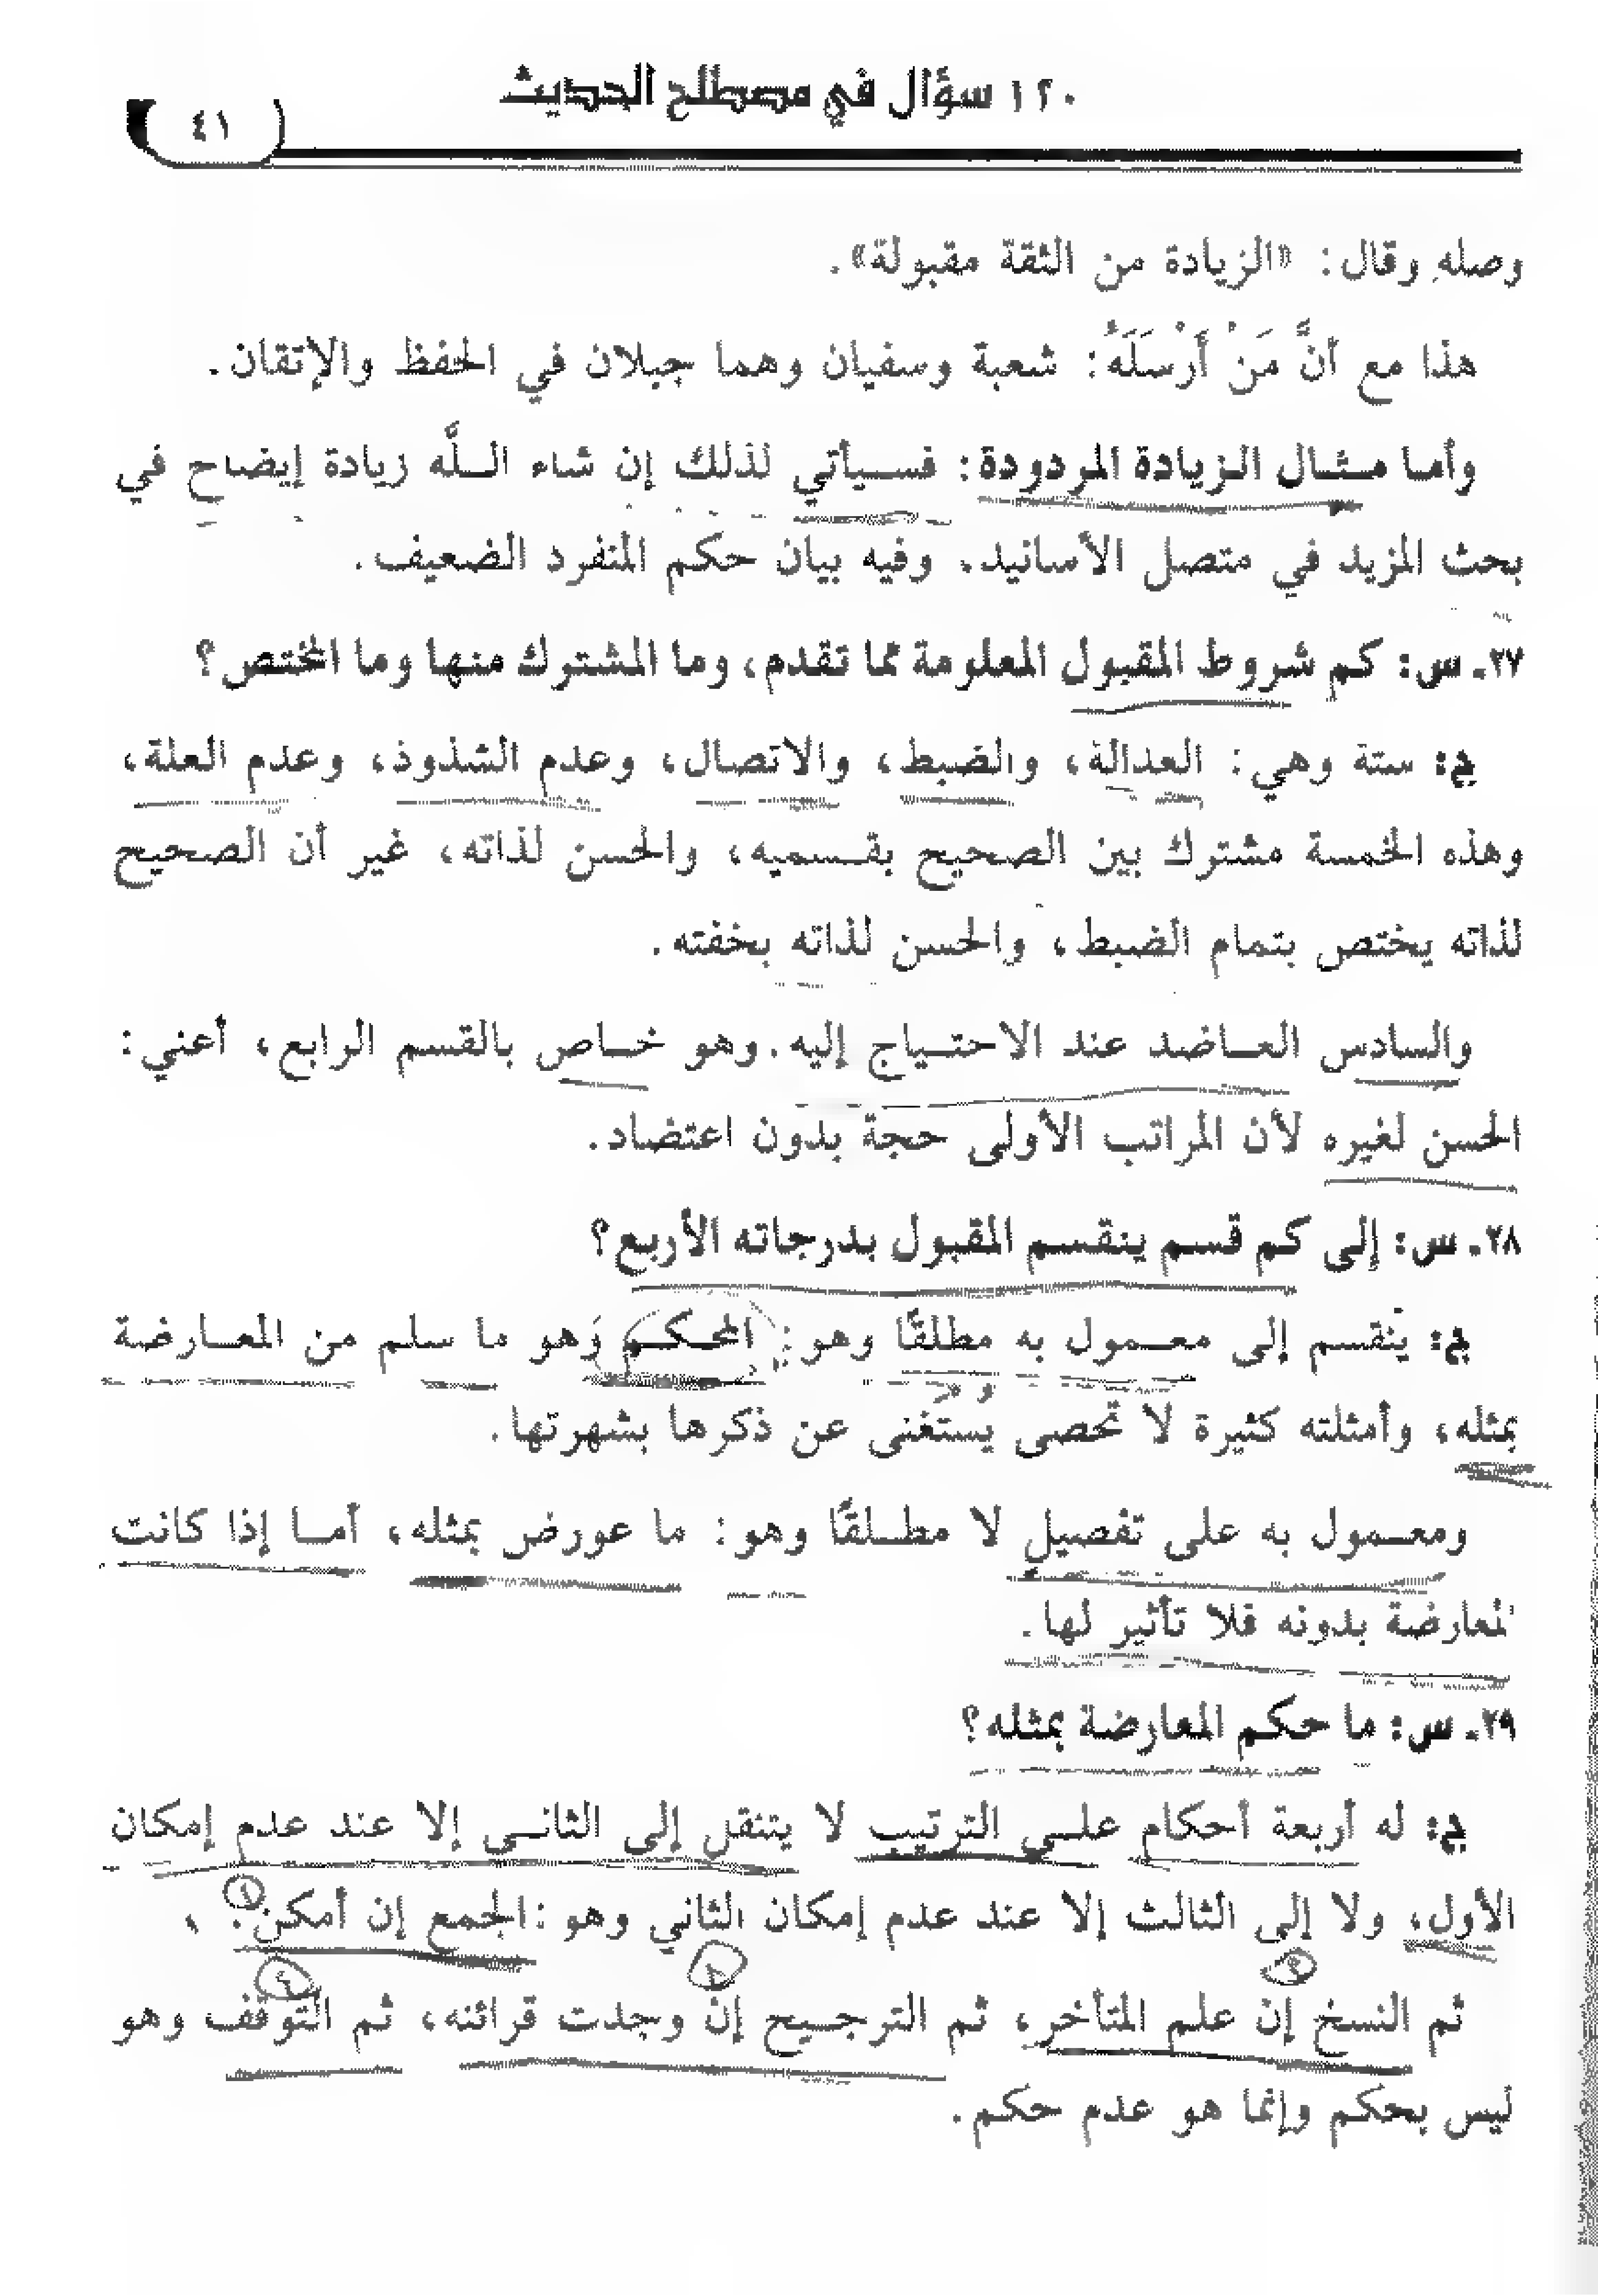 ١٢٠ سؤال في مصطلح الحديث
٤١
وصله وقال: «الزيادة من الثقة مقبولة».
هذا مع أنَّ مَنْ أَرْسَلَهُ: شعبة وسفيان وهما جبلان في الحفظ والإتقان.
وأما مثال الزيادة المردودة: فسيأتي لذلك إن شاء اللَّه زيادة إيضاح في
بحث المزيد في متصل الأسانيد. وفيه بيان حكم المتفرد الضعيف.
٢٧. س: كم شروط المقبول المعلومة مما تقدم، وما المشترك منها وما المختص؟
ج: ستة وهي: العدالة، والضبط، والاتصال، وعدم الشذوذ، وعدم العلة،
وهذه الخمسة مشترك بين الصحيح بقسميه، والحسن لذاته، غير أن الصحيح
لذاته يختص بتمام الضبط، والحسن لذاته بخفته.
والسادس العاضد عند الاحتياج إليه. وهو خاص بالقسم الرابع، أعني:
الحسن لغيره لأن المراتب الأولى حجة بدون اعتضاد.
٢٨. س: إلى كم قسم ينقسم المقبول بدرجاته الأربع؟
ج: ينقسم إلى معمول به مطلقًا وهو: المحكم وهو ما سلم من المعارضة
بمثله، وأمثلته كثيرة لا تحصى يستغنى عن ذكرها بشهرتها.
ومعمول به على تفصيل لا مطلقًا وهو: ما عورض بمثله، أما إذا كانت
المعارضة بدونه فلا تأثير لها.
٢٩. س: ما حكم المعارضة بمثله؟
ج: له أربعة أحكام على الترتيب لا ينتقل إلى الثاني إلا عند عدم إمكان
الأول، ولا إلى الثالث إلا عند عدم إمكان الثاني وهو: الجمع إن أمكن. ١
٢ ٣ ٤
ثم النسخ إن علم المتأخر، ثم الترجيح إن وجدت قرائنه، ثم التوقف وهو
ليس بحكم وإنما هو عدم حكم.